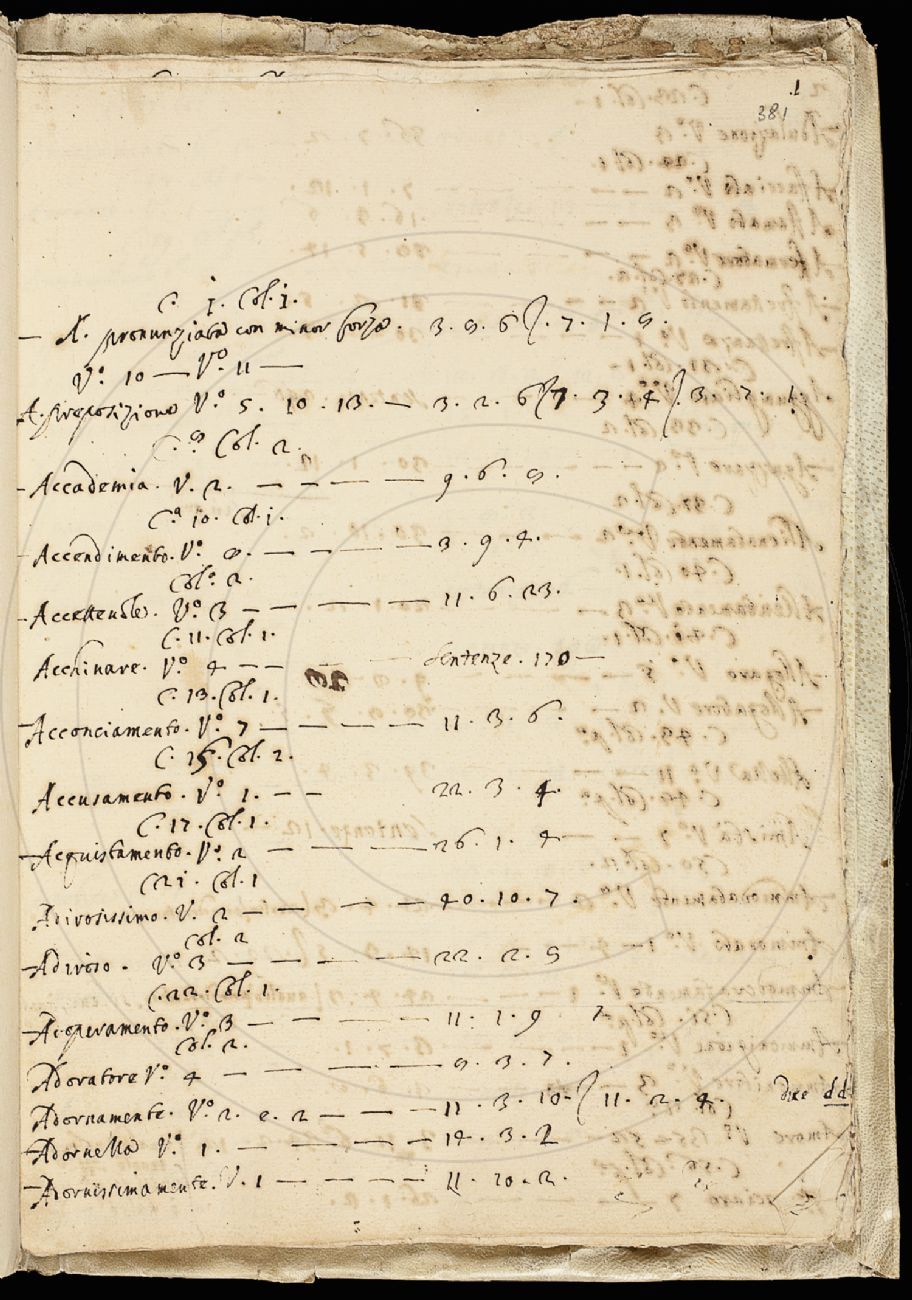 1
381
C. 1. Col. 1.
— A. pronunziata con minor forza. 3. 9. 6 /. 7. 1. 9.
V.º 10 — V.º 11 —
A. preposizione V.º 5. 10. 13. — 3. 2. 6 / 7. 3. 4 /. 3. 7. 1.
C. 9 Col. 2.
— Accademia. V. 2. — — — — 9. 6. 9.
C.ª 10. Col. 1.
— Accendimento. V.º 9. — — — — 3. 9. 4.
Col.ª 2.
— Accettevole. V.º 3 — — — — 11. 6. 23.
C. 11. Col. 1.
Acchinare. V.º 4 — — — — Sentenze. 170 —
C. 13. Col. 1.
— Acconciamento. V.º 7 — — — — 11. 3. 6.
C. 15. Col. 2.
Accusamento. V.º 1. — — 22. 3. 4.
C. 17. Col. 1.
— Acquistamento. V.º 2 — — — — 26. 1. 4
C 21. Col. 1
Adirosissimo. V. 2 — — — — 40. 10. 7.
Col. 2
— Adiroso. V.º 3 — — — — 22. 2. 9
C. 22. Col. 1.
— Adoperamento. V.º 3 — — — — 11. 1. 9
Col. 2.
Adoratore V.º 4 — — — — 9. 3. 7.
Adornamente. V.º 2. e. 2 — — — 11. 3. 10 — / 11. 2. 4. due dd
— Adornella V.º 1. — — — — 14. 3. 2
— Adornissimamente. V. 1 — — — — 11. 10. 2.